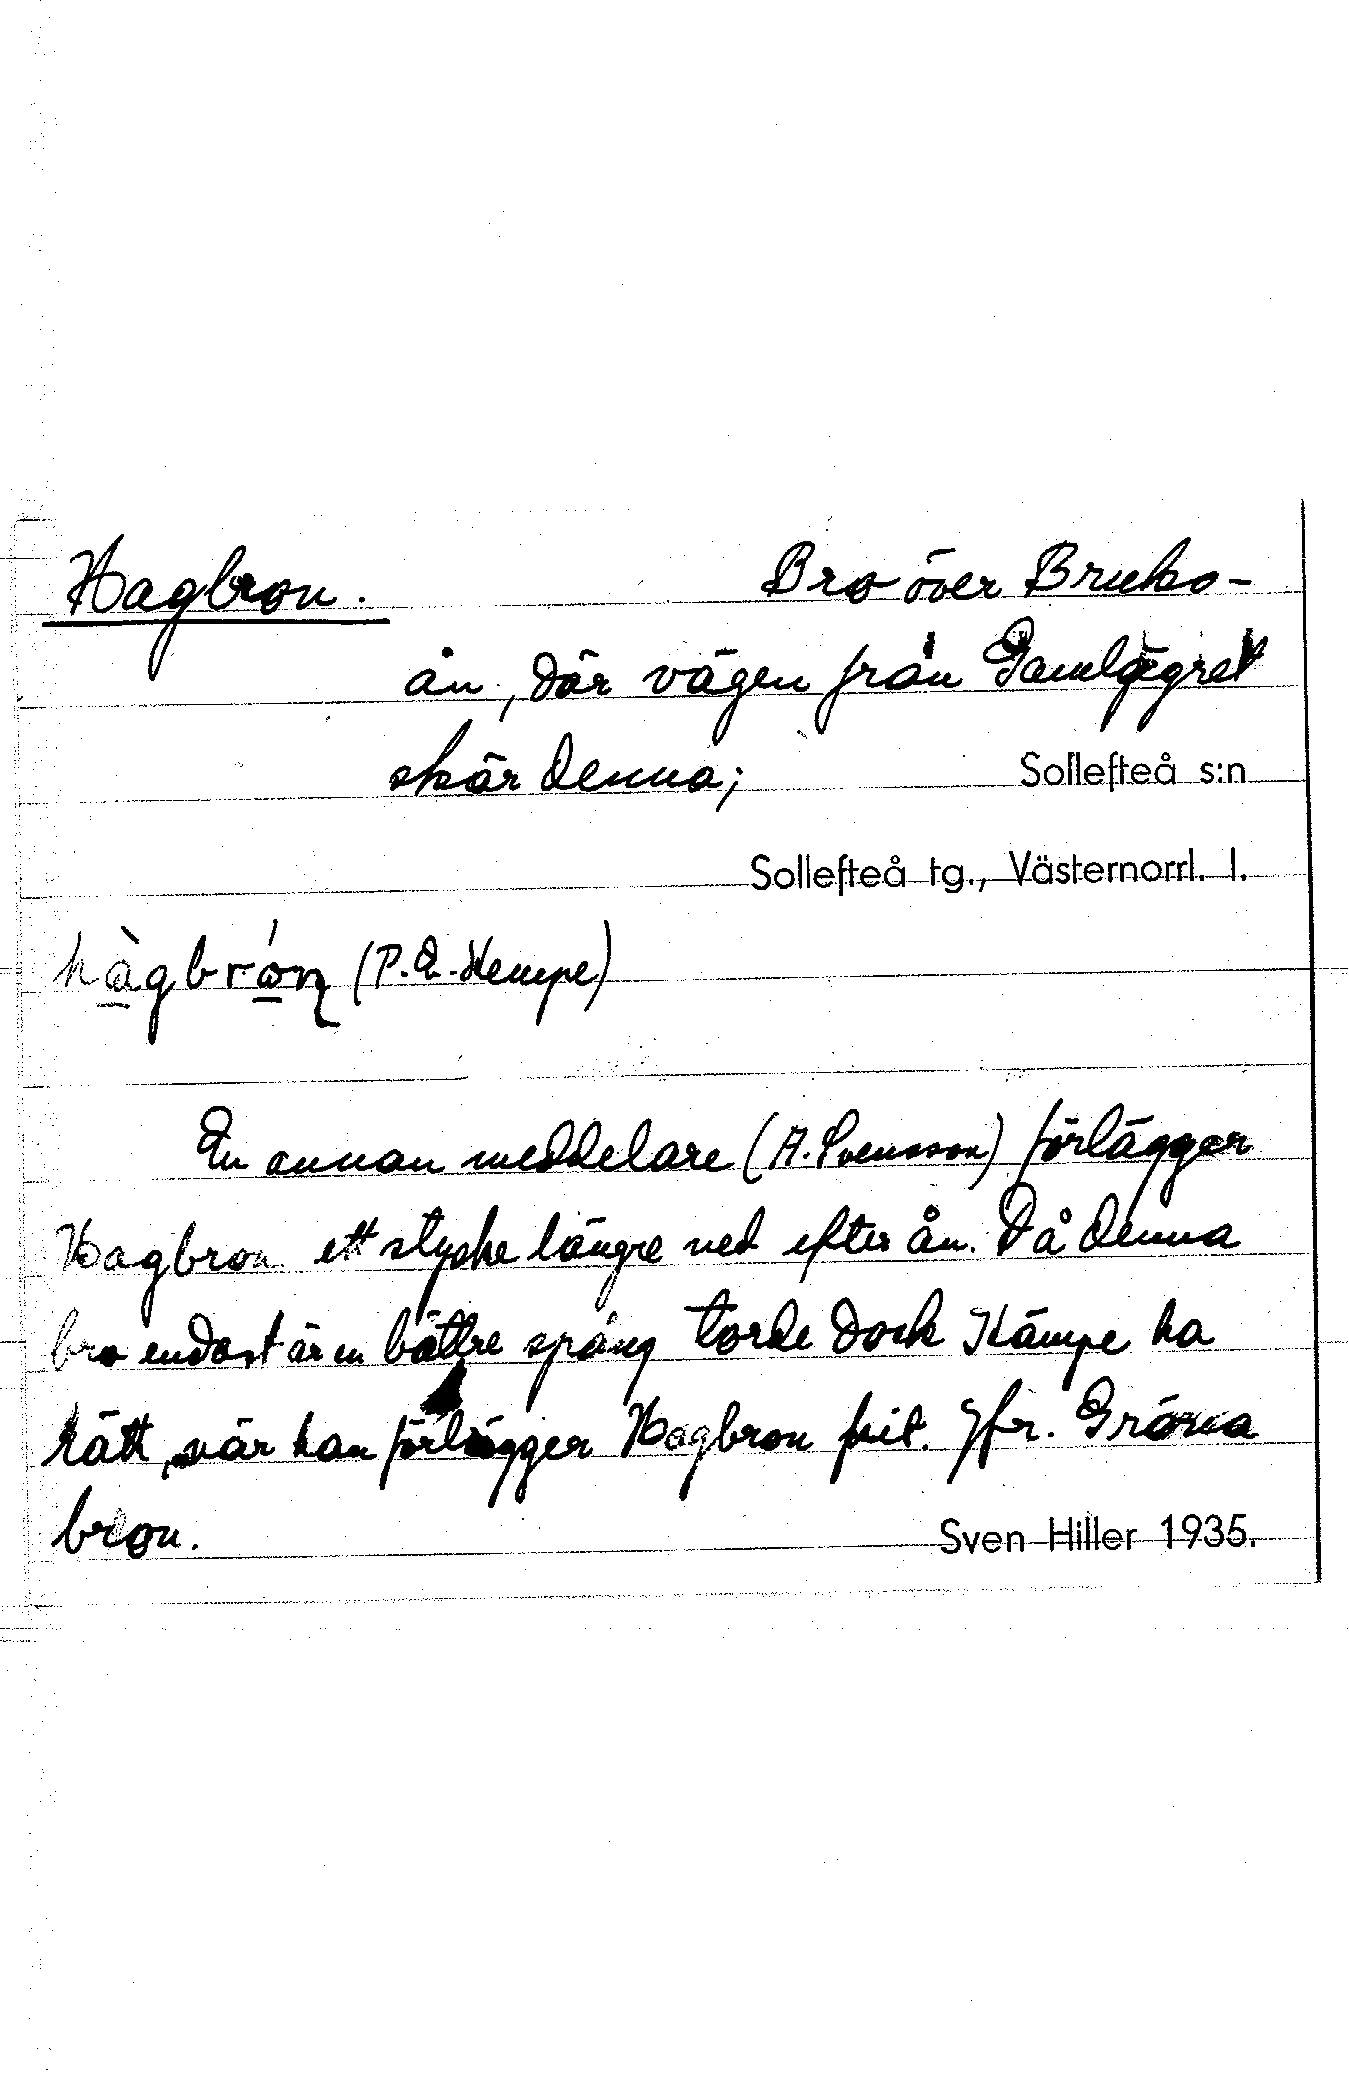 Hagbron. Bro över Bruks-
ån, där vägen från Gamlägret
skär denna; Sollefteå s:n
Sollefteå tg., Västernorrl. l.
hàgbrón (P.E. Kempe)
En annan meddelare (A. Svensson) förlägger
Hagbron ett stycke längre ned efter ån. Då denna
bro endast är en bättre spång torde dock Kämpe ha
rätt, när han förlägger Hagbron hit. Jfr. Gröna
bron. Sven Hiller 1935.